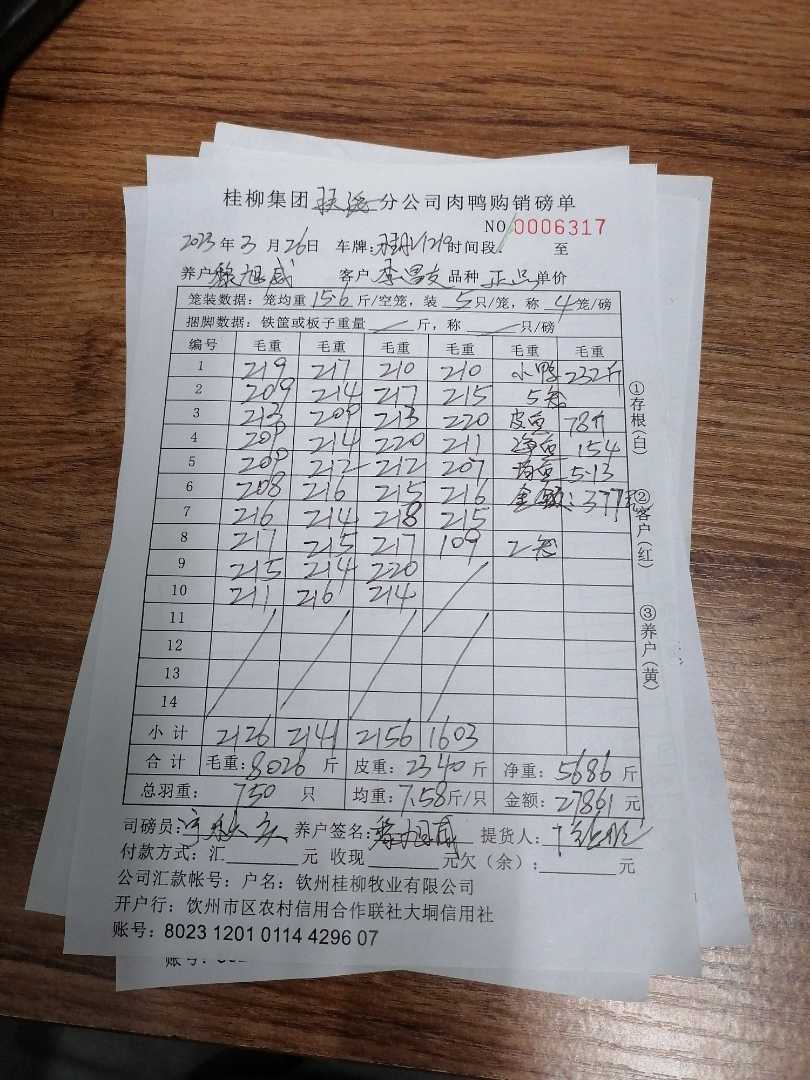 桂柳集团 分公司肉鸭购销磅单
NO 0006317
2023年3月26日 车牌: 1219时间段: 至
养户 黎旭威 客户 李昌友 品种 正品 单价
笼装数据：笼均重15.6斤/空笼，装5只/笼，称4笼/磅
捆脚数据：铁筐或板子重量 / 斤，称 / 只/磅
编号 毛重 毛重 毛重 毛重 毛重 毛重
1 219 217 210 210 小鸭 232斤
2 209 214 217 215 5笼
3 213 209 213 220 皮重 78斤
4 209 214 220 211 净重 154
5 209 212 212 207 均重 5.13
6 208 216 215 216 金额: 377元
7 216 214 218 215
8 217 215 217 109 2笼
9 215 214 220
10 211 216 214
11
12
13
14
小计 2126 2141 2156 1603
合计 毛重: 8026 斤 皮重: 2340 斤 净重: 5686 斤
总羽重: 750 只 均重: 7.58斤/只 金额: 27861 元
司磅员: 养户签名: 黎旭威 提货人:
付款方式：汇 元 收现 元欠（余）： 元
公司汇款帐号：户名：钦州桂柳牧业有限公司
开户行：饮州市区农村信用合作联社大垌信用社
账号：8023 1201 0114 4296 07
账号:
①存根(白)
②客户(红)
③养户(黄)